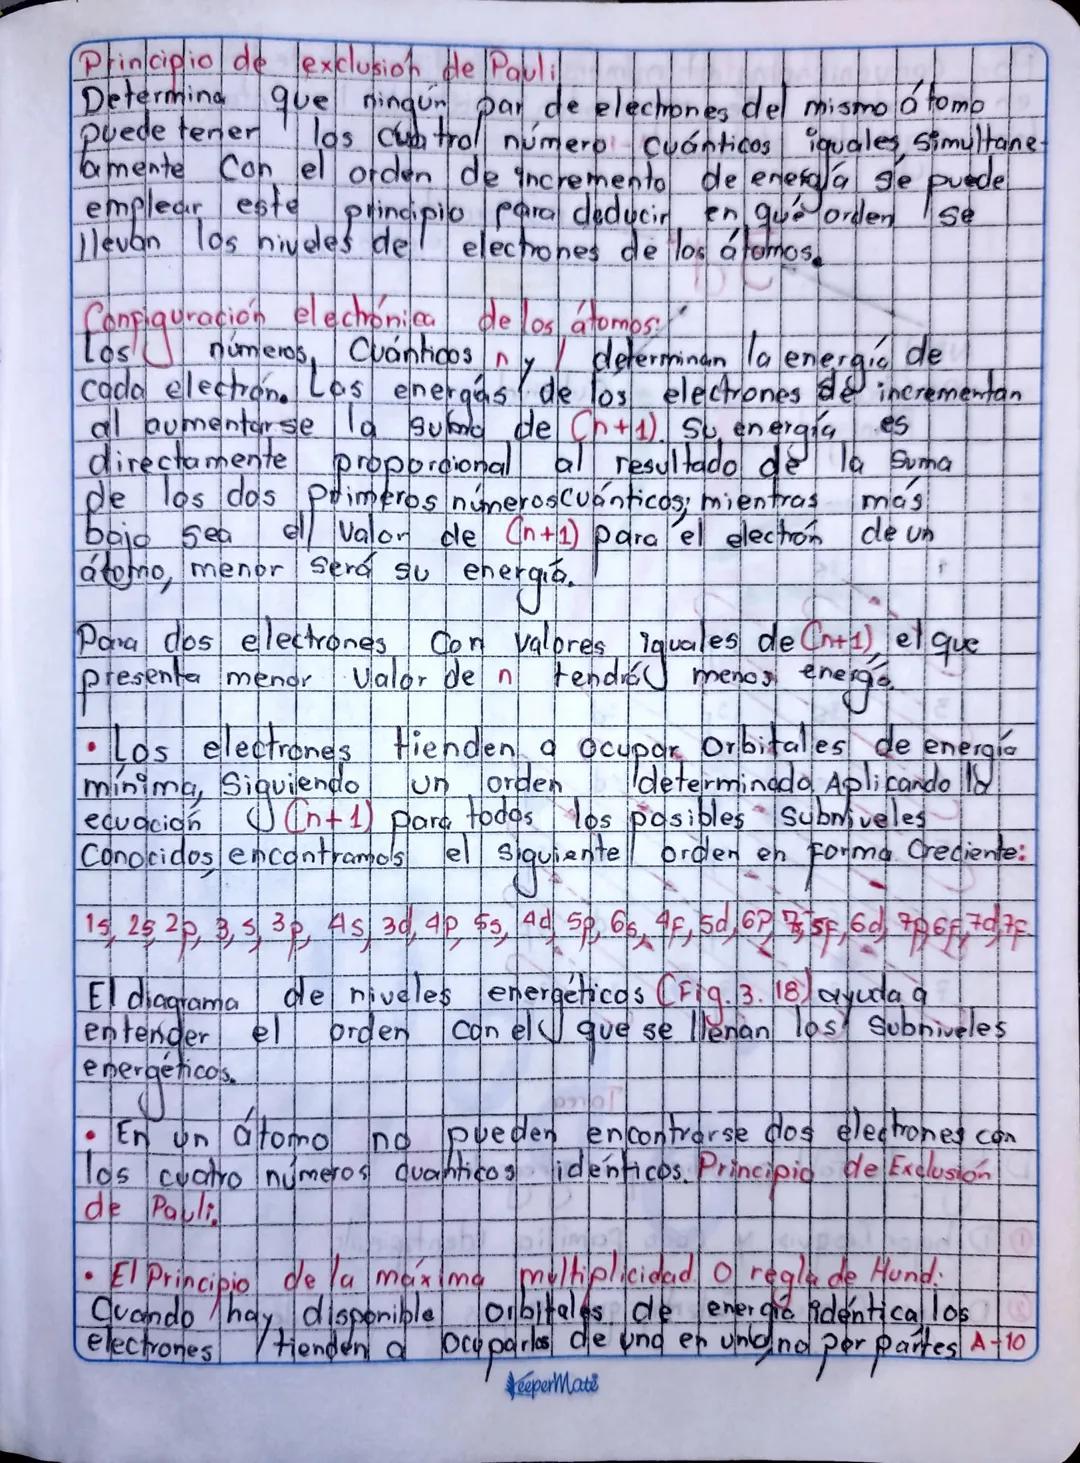 Principio de exclusión de Pauli
Determina que ningún par de electrones del mismo átomo
puede tener los cuatro número cuánticos iguales simultane-
amente Con el orden de incremento de energía se puede
emplear este principio para deducir en qué orden se
llevan los niveles de electrones de los átomos.
Configuración electrónica de los átomos:
Los números Cuánticos n y l determinan la energía de
cada electrón. Las energás de los electrones de incrementan
al aumentarse la suma de (n+1). su energía es
directamente proporcional al resultado de la suma
de los dos primeros números cuánticos; mientras más
bajo sea el valor de (n+1) para el electrón de un
átomo, menor será su energía.
Para dos electrones con valores iguales de (n+1), el que
presenta menor valor de n tendrá menos energía.
• Los electrones tienden a ocupar orbitales de energía
mínima, Siguiendo un orden determinado Aplicando la
ecuación (n+1) para todos los posibles subniveles
Conocidos, encontramos el siguiente orden en forma Creciente:
1s, 2s, 2p, 3,s, 3p, 4s, 3d, 4p, 5s, 4d, 5p, 6s, 4f, 5d, 6p, 7s, 5f, 6d, 7p, 6f, 7d, 7f.
El diagrama de niveles energéticos (Fig. 3. 18) ayuda a
entender el orden con el que se llenan los subniveles
energéticos.
• En un átomo no pueden encontrarse dos electrones con
los cuatro números quanticos idénticos. Principio de Exclusión
de Pauli.
• El Principio de la máxima multiplicidad o regla de Hund.
Cuando hay disponible orbitales de energía idéntica los
electrones tienden a ocuparlos de una en una no por partes A-10
KeeperMate